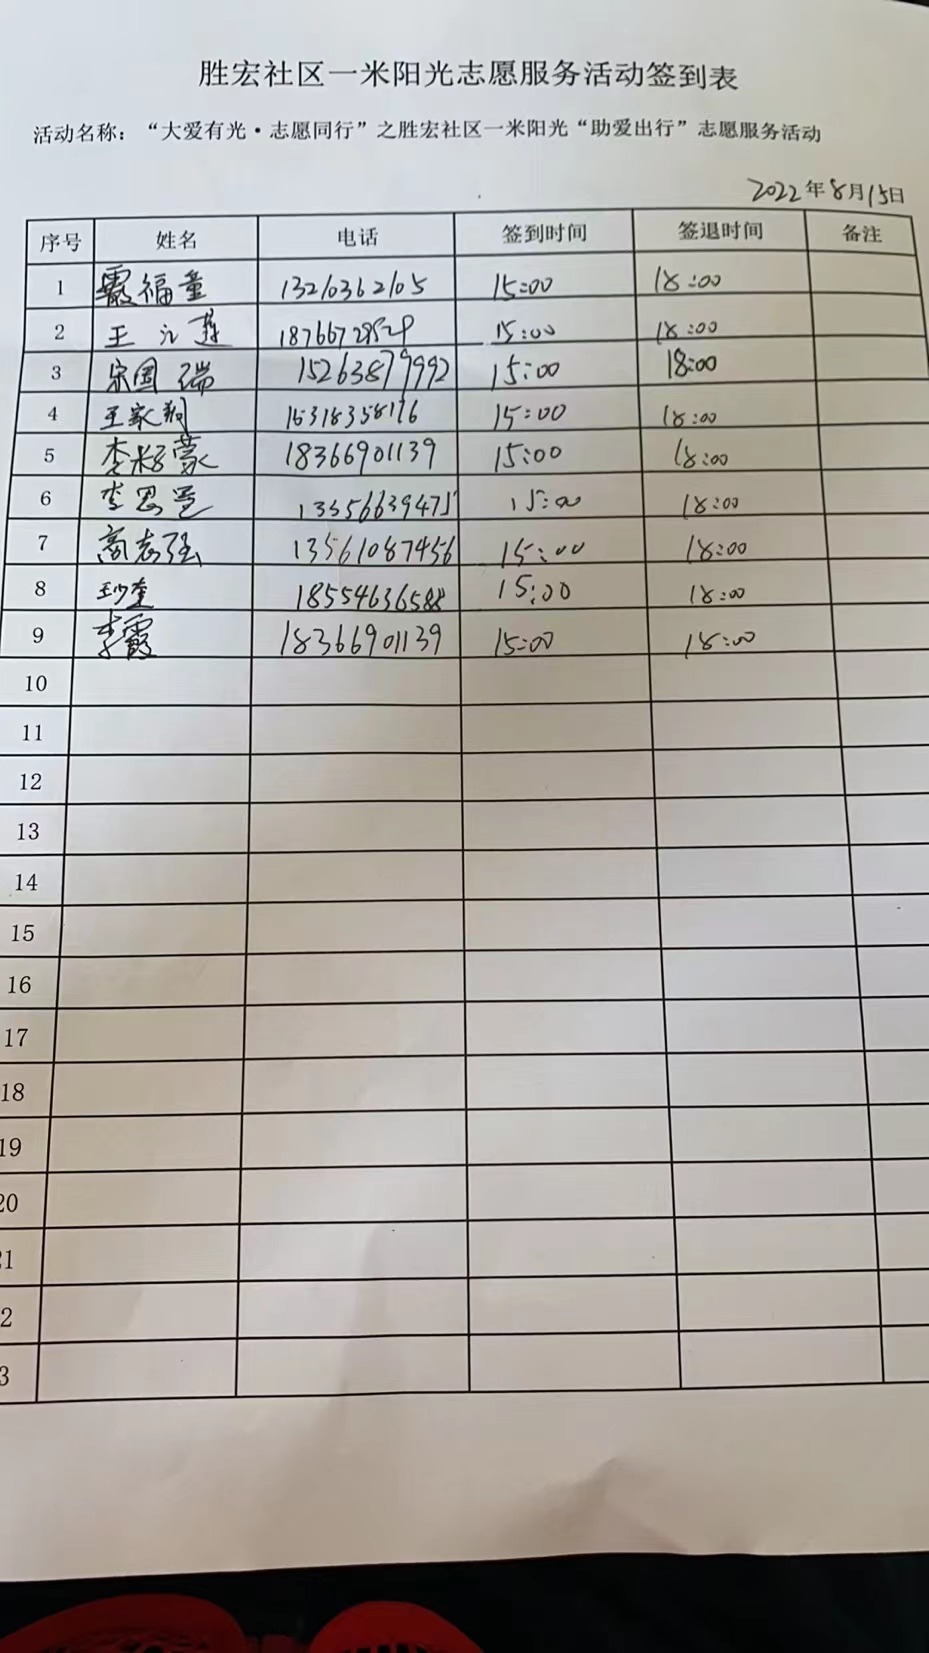 胜宏社区一米阳光志愿服务活动签到表
活动名称：“大爱有光·志愿同行”之胜宏社区一米阳光“助爱出行”志愿服务活动
2022年8月15日
序号 姓名 电话 签到时间 签退时间 备注
1 福童 13210362105 15:00 18:00
2 王 15:00 18:00
3 宋国瑞 15263879992 15:00 18:00
4 王家翔 15318358176 15:00 18:00
5 李 18366901139 15:00 18:00
6 李思 13356639475 15:00 18:00
7 高志强 13561087456 15:00 18:00
8 18554636588 15:00 18:00
9 李霞 18366901139 15:00 18:00
10
11
12
13
14
15
16
17
18
19
20
1
2
3